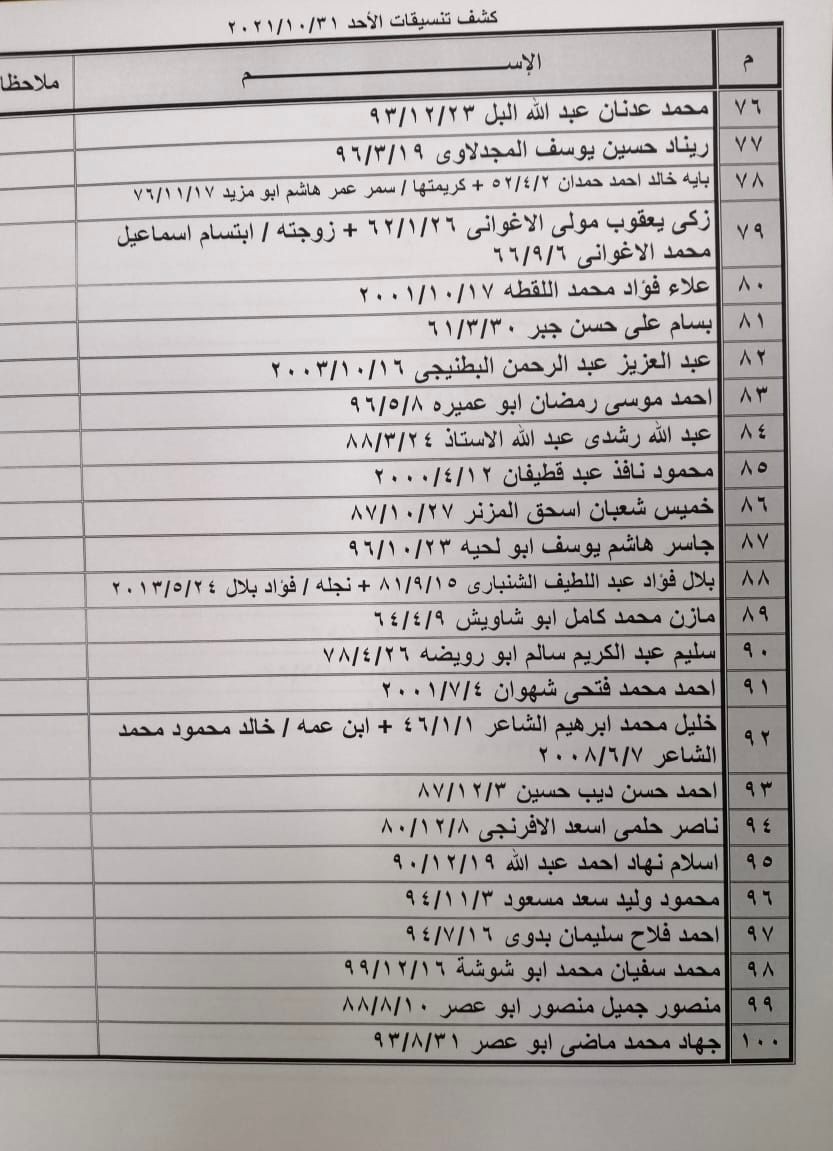 كشف تنسيقات الأحد ٢٠٢١/١٠/٣١
م الإســـــــــــــــم ملاحظا
٧٦ محمد عدنان عبد الله البل ٩٣/١٢/٢٣
٧٧ ريناد حسين يوسف المجدلاوى ٩٦/٣/١٩
٧٨ بايه خالد احمد حمدان ٥٢/٤/٢ + كريمتها / سمر عمر هاشم ابو مزيد ٧٦/١١/١٧
٧٩ زكى يعقوب مولى الاغوانى ٦٢/١/٢٦ + زوجته / ابتسام اسماعيل
محمد الاغوانى ٦٦/٩/٦
٨٠ علاء فؤاد محمد اللقطه ٢٠٠١/١٠/١٧
٨١ بسام على حسن جبر ٦١/٣/٣٠
٨٢ عبد العزيز عبد الرحمن البطنيجى ٢٠٠٣/١٠/١٦
٨٣ احمد موسى رمضان ابو عميره ٩٦/٥/٨
٨٤ عبد الله رشدى عبد الله الاستاذ ٨٨/٣/٢٤
٨٥ محمود نافذ عبد قطيفان ٢٠٠٠/٤/١٢
٨٦ خميس شعبان اسحق المزنر ٨٧/١٠/٢٧
٨٧ جاسر هاشم يوسف ابو لحيه ٩٦/١٠/٢٣
٨٨ بلال فؤاد عبد اللطيف الشنبارى ٨١/٩/١٥ + نجله / فؤاد بلال ٢٠١٣/٥/٢٤
٨٩ مازن محمد كامل ابو شاويش ٦٤/٤/٩
٩٠ سليم عبد الكريم سالم ابو رويضه ٧٨/٤/٢٦
٩١ احمد محمد فتحى شهوان ٢٠٠١/٧/٤
٩٢ خليل محمد ابرهيم الشاعر ٤٦/١/١ + ابن عمه / خالد محمود محمد
الشاعر ٢٠٠٨/٦/٧
٩٣ احمد حسن ديب حسين ٨٧/١٢/٣
٩٤ ناصر حلمى اسعد الافرنجى ٨٠/١٢/٨
٩٥ اسلام نهاد احمد عبد الله ٩٠/١٢/١٩
٩٦ محمود وليد سعد مسعود ٩٤/١١/٣
٩٧ احمد فلاح سليمان بدوى ٩٤/٧/١٦
٩٨ محمد سفيان محمد ابو شوشة ٩٩/١٢/١٦
٩٩ منصور جميل منصور ابو عصر ٨٨/٨/١٠
١٠٠ جهاد محمد ماضى ابو عصر ٩٣/٨/٣١